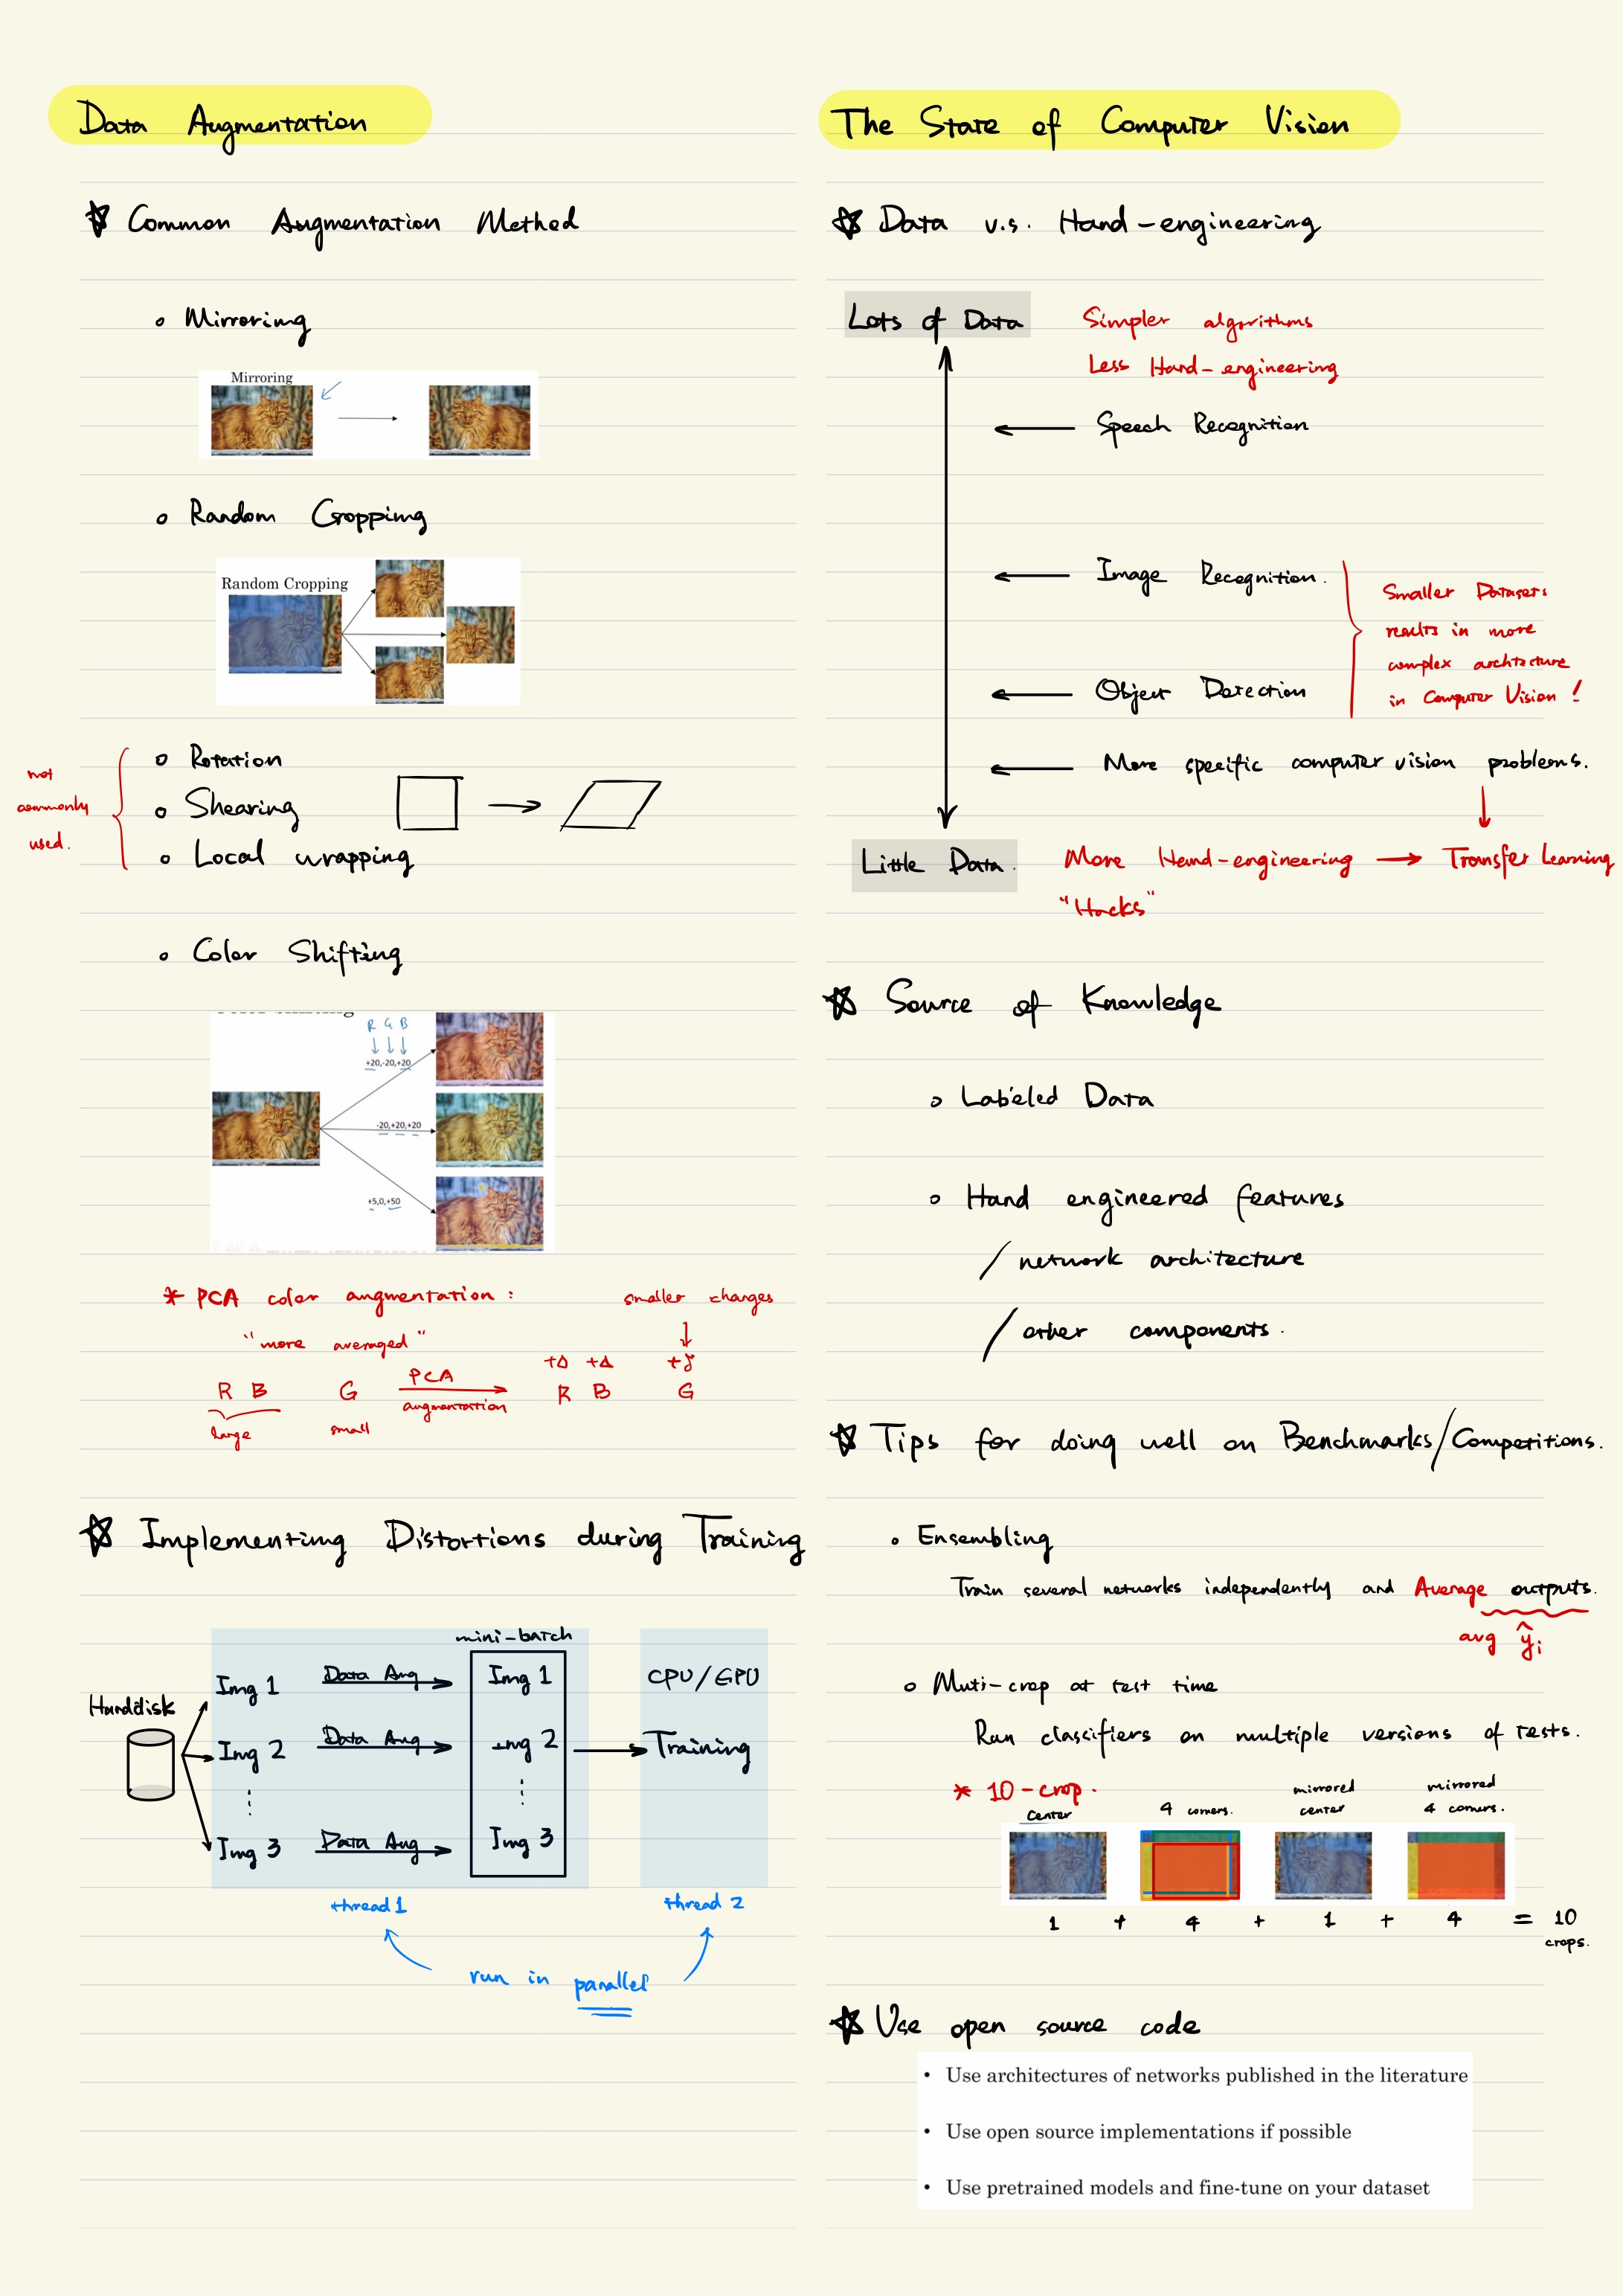 Data Augmentation
☆ Common Augmentation Method
∘ Mirroring
Mirroring
∘ Random Cropping
Random Cropping
∘ Rotation
∘ Shearing
∘ Local wrapping
not
commonly
used.
∘ Color Shifting
R G B
+20,-20,+20
-20,+20,+20
+5,0,+50
* PCA color augmentation :
"more averaged"
smaller changes
R B G PCA augmentation
large small
+Δ +Δ +δ
R B G
☆ Implementing Distortions during Training
Harddisk
mini-batch
Img 1 Data Aug Img 1 CPU/GPU
Img 2 Data Aug Img 2 Training
Img 3 Data Aug Img 3
thread 1 thread 2
run in parallel
The State of Computer Vision
☆ Data v.s. Hand-engineering
Lots of Data Simpler algorithms
Less Hand-engineering
Speech Recognition
Image Recognition.
Object Detection
Smaller Datasets
results in more
complex architcture
in Computer Vision !
More specific computer vision problems.
Little Data. More Hand-engineering → Transfer Learning
"Hacks"
☆ Source of Knowledge
∘ Labeled Data
∘ Hand engineered features
/ network architecture
/ other components.
☆ Tips for doing well on Benchmarks/Competitions.
∘ Ensembling
Train several networks independently and Average outputs.
avg ŷi
∘ Muti-crop at test time
Run classifiers on multiple versions of tests.
* 10-crop.
center 4 corners. mirrored center mirrored 4 corners.
1 + 4 + 1 + 4 = 10
crops.
☆ Use open source code
• Use architectures of networks published in the literature
• Use open source implementations if possible
• Use pretrained models and fine-tune on your dataset